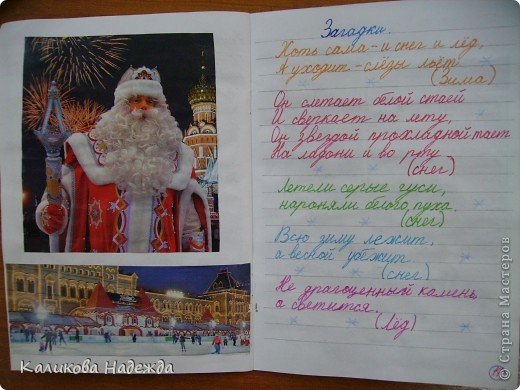 Загадки.
Хоть сама - и снег и лёд,
А уходит - слёзы льёт.
(Зима)
Он слетает белой стаей
И сверкает на лету,
Он звездой прохладной тает
На ладони и во рту
(снег)
Летели серые гуси,
нароняли белого пуха.
(снег)
Всю зиму лежит,
а весной убежит
(снег)
Не драгоценный камень
а светится.
(Лёд)
Каликова Надежда
© Страна Мастеров